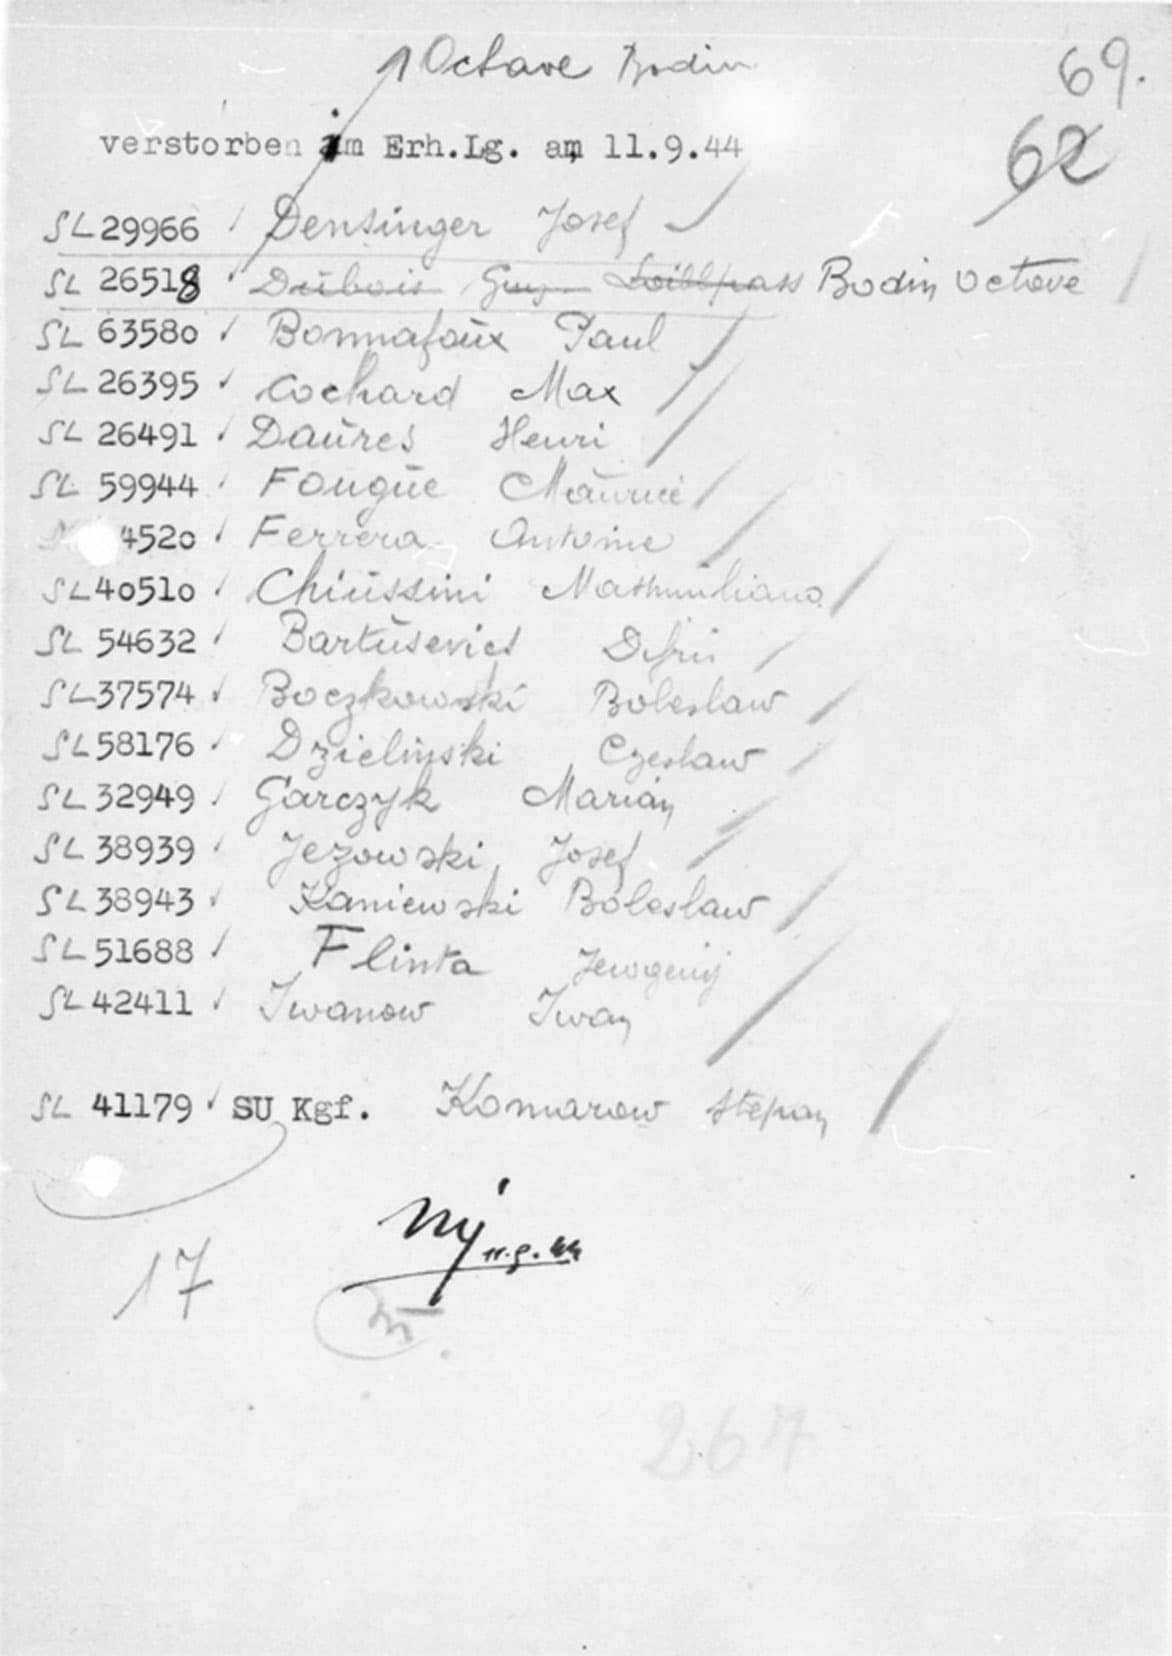 1 Octave Bodin
69.
62
verstorben im Erh.Lg. am 11.9.44
SL 29966 Densinger Josef
SL 26518 Dübois Guy Loiblpass Bodin Octave
SL 63580 Bonnafoux Paul
SL 26395 Cochard Max
SL 26491 Daüres Henri
SL 59944 Fougüe Maürice
4520 Ferrera Antoine
SL 40510 Chiüssini
SL 54632 Bartüsevics
SL 37574 Boczkowski Boleslaw
SL 58176 Dzielinski Czeslaw
SL 32949 Garczyk Marian
SL 38939 Jezowski Josef
SL 38943 Kaniewski Boleslaw
SL 51688 Flinta Jewgenij
SL 42411 Iwanow Iwan
SL 41179 SU Kgf. Komarow Stepan
11.9.44
17
267